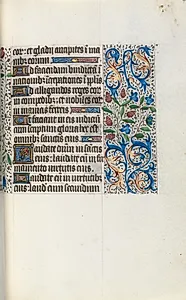 eor: et gladii ancipites i ma
nibz eorum
Ad faciendam vindictā
nationibz
Ad alligandos reges eor
in compedibz: et nobiles eor
in manicis ferreis
Ut faciant in eis iudiciū
cōm scriptum gloria hec est
omnibz sanctis eius
Laudate dnm in sanctis
eius: laudate eū in firma
mento virtutis eius
Laudate eū in virtutibz
eius: laud eum secundum